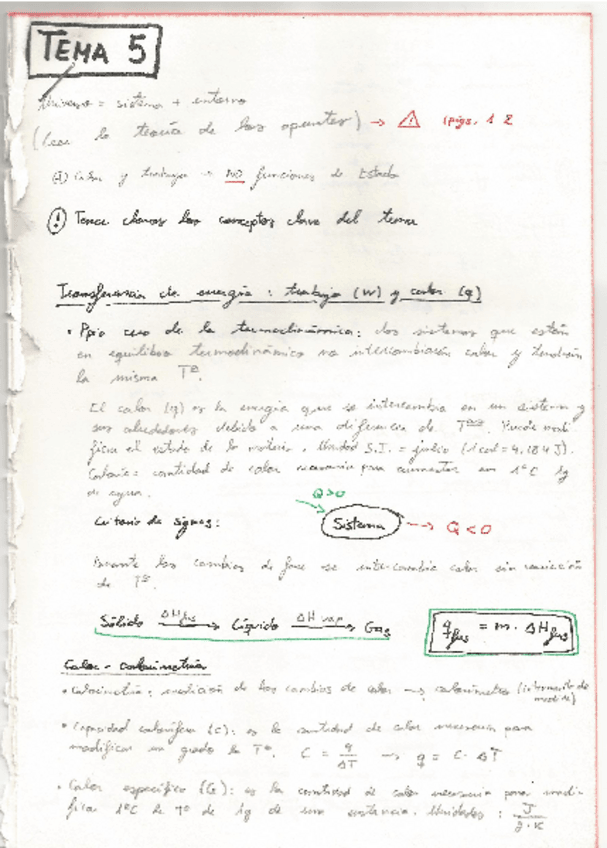 TEMA 5
Universo = sistema + entorno
(Leer la teoría de los apuntes) → ⚠ (págs. 1 2
Calor y trabajo → NO funciones de Estado
! Tener claros los conceptos clave del tema
Transferencia de energía : trabajo (W) y calor (q)
• Ppio cero de la termodinámica: dos sistemas que están
en equilibrio termodinámico no intercambiarán calor y tendrán
la misma Tª.
El calor (q) es la energía que se intercambia en un sistema y
sus alrededores debido a una diferencia de Tªˢ. Puede modi-
ficar el estado de la materia. Unidad S.I. = julio (1 cal = 4,184 J).
Caloría = cantidad de calor necesaria para aumentar en 1°C 1g
de agua.
Q>0
Criterio de signos: Sistema → Q < 0
Durante los cambios de fase se intercambia calor sin variación
de Tª.
Sólido ΔHfus → Líquido ΔH vap → Gas
qfus = m · ΔHfus
Calor - calorimetría
• Calorimetría: medición de los cambios de calor → calorímetro (instrumento de
medida)
• Capacidad calorífica (C): es la cantidad de calor necesaria para
modificar un grado la Tª. C = q/ΔT → q = C · ΔT
• Calor específico (Ce): es la cantidad de calor necesaria para modi-
ficar 1°C la Tª de 1g de una sustancia. Unidades : J/g·K